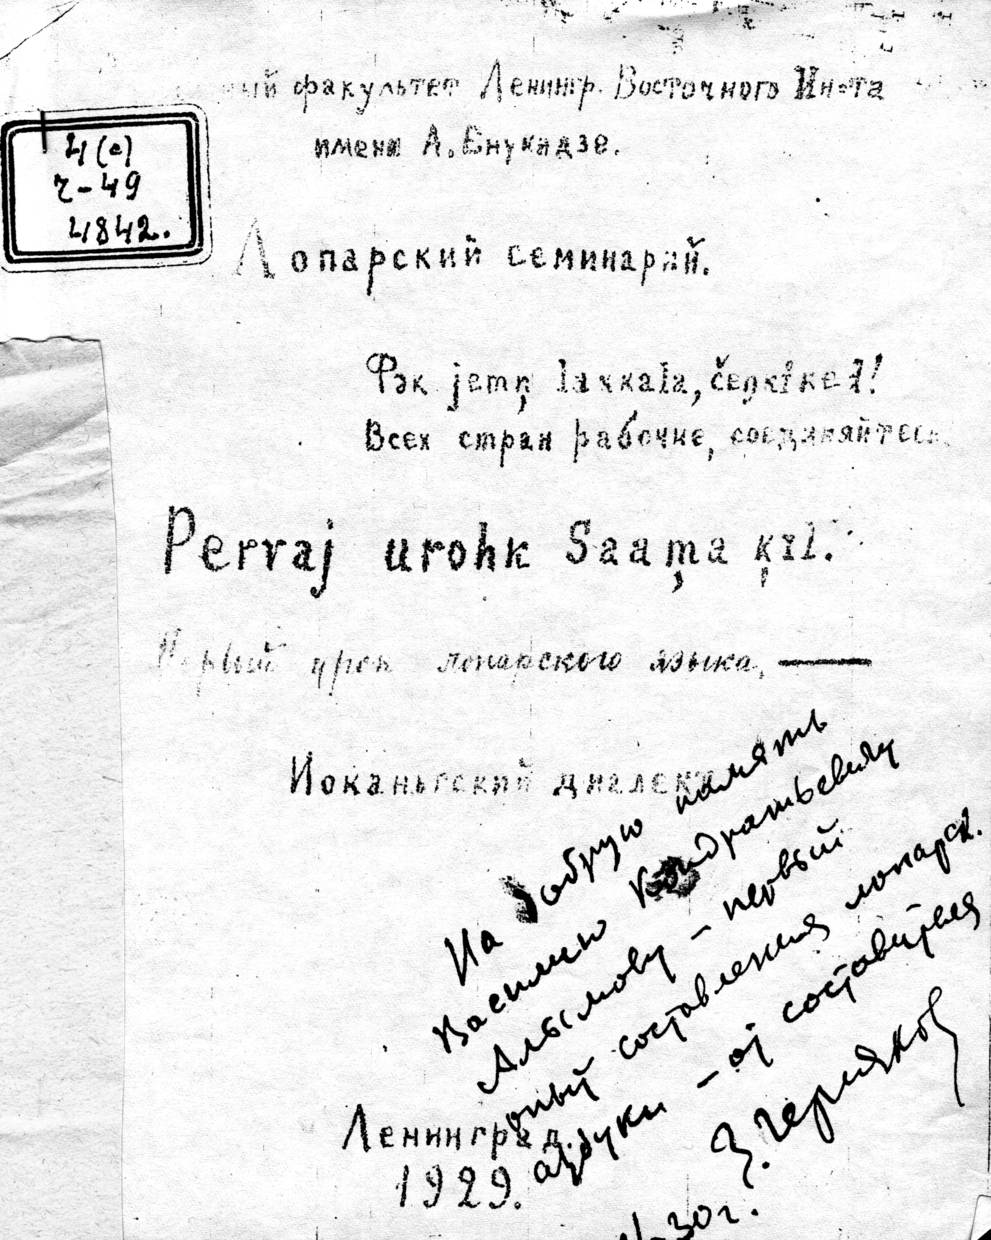 факультет Ленингр. Восточного Ин-та
имени А. Енукидзе.
4(с)
Ч-49
4842.
Лопарский семинарий.
jemņ laxkala,
Всех стран рабочие, соединяйтесь
Pervaj urohk Saam̦a ķīl.
Первый урок лопарского языка.
Иоканьгский диалект
На добрую память
Василию Кондратьевичу
Алымову – первый
опыт составления лопарск.
азбуки – от составителя
З. Черняков
30 г.
Ленинград.
1929.